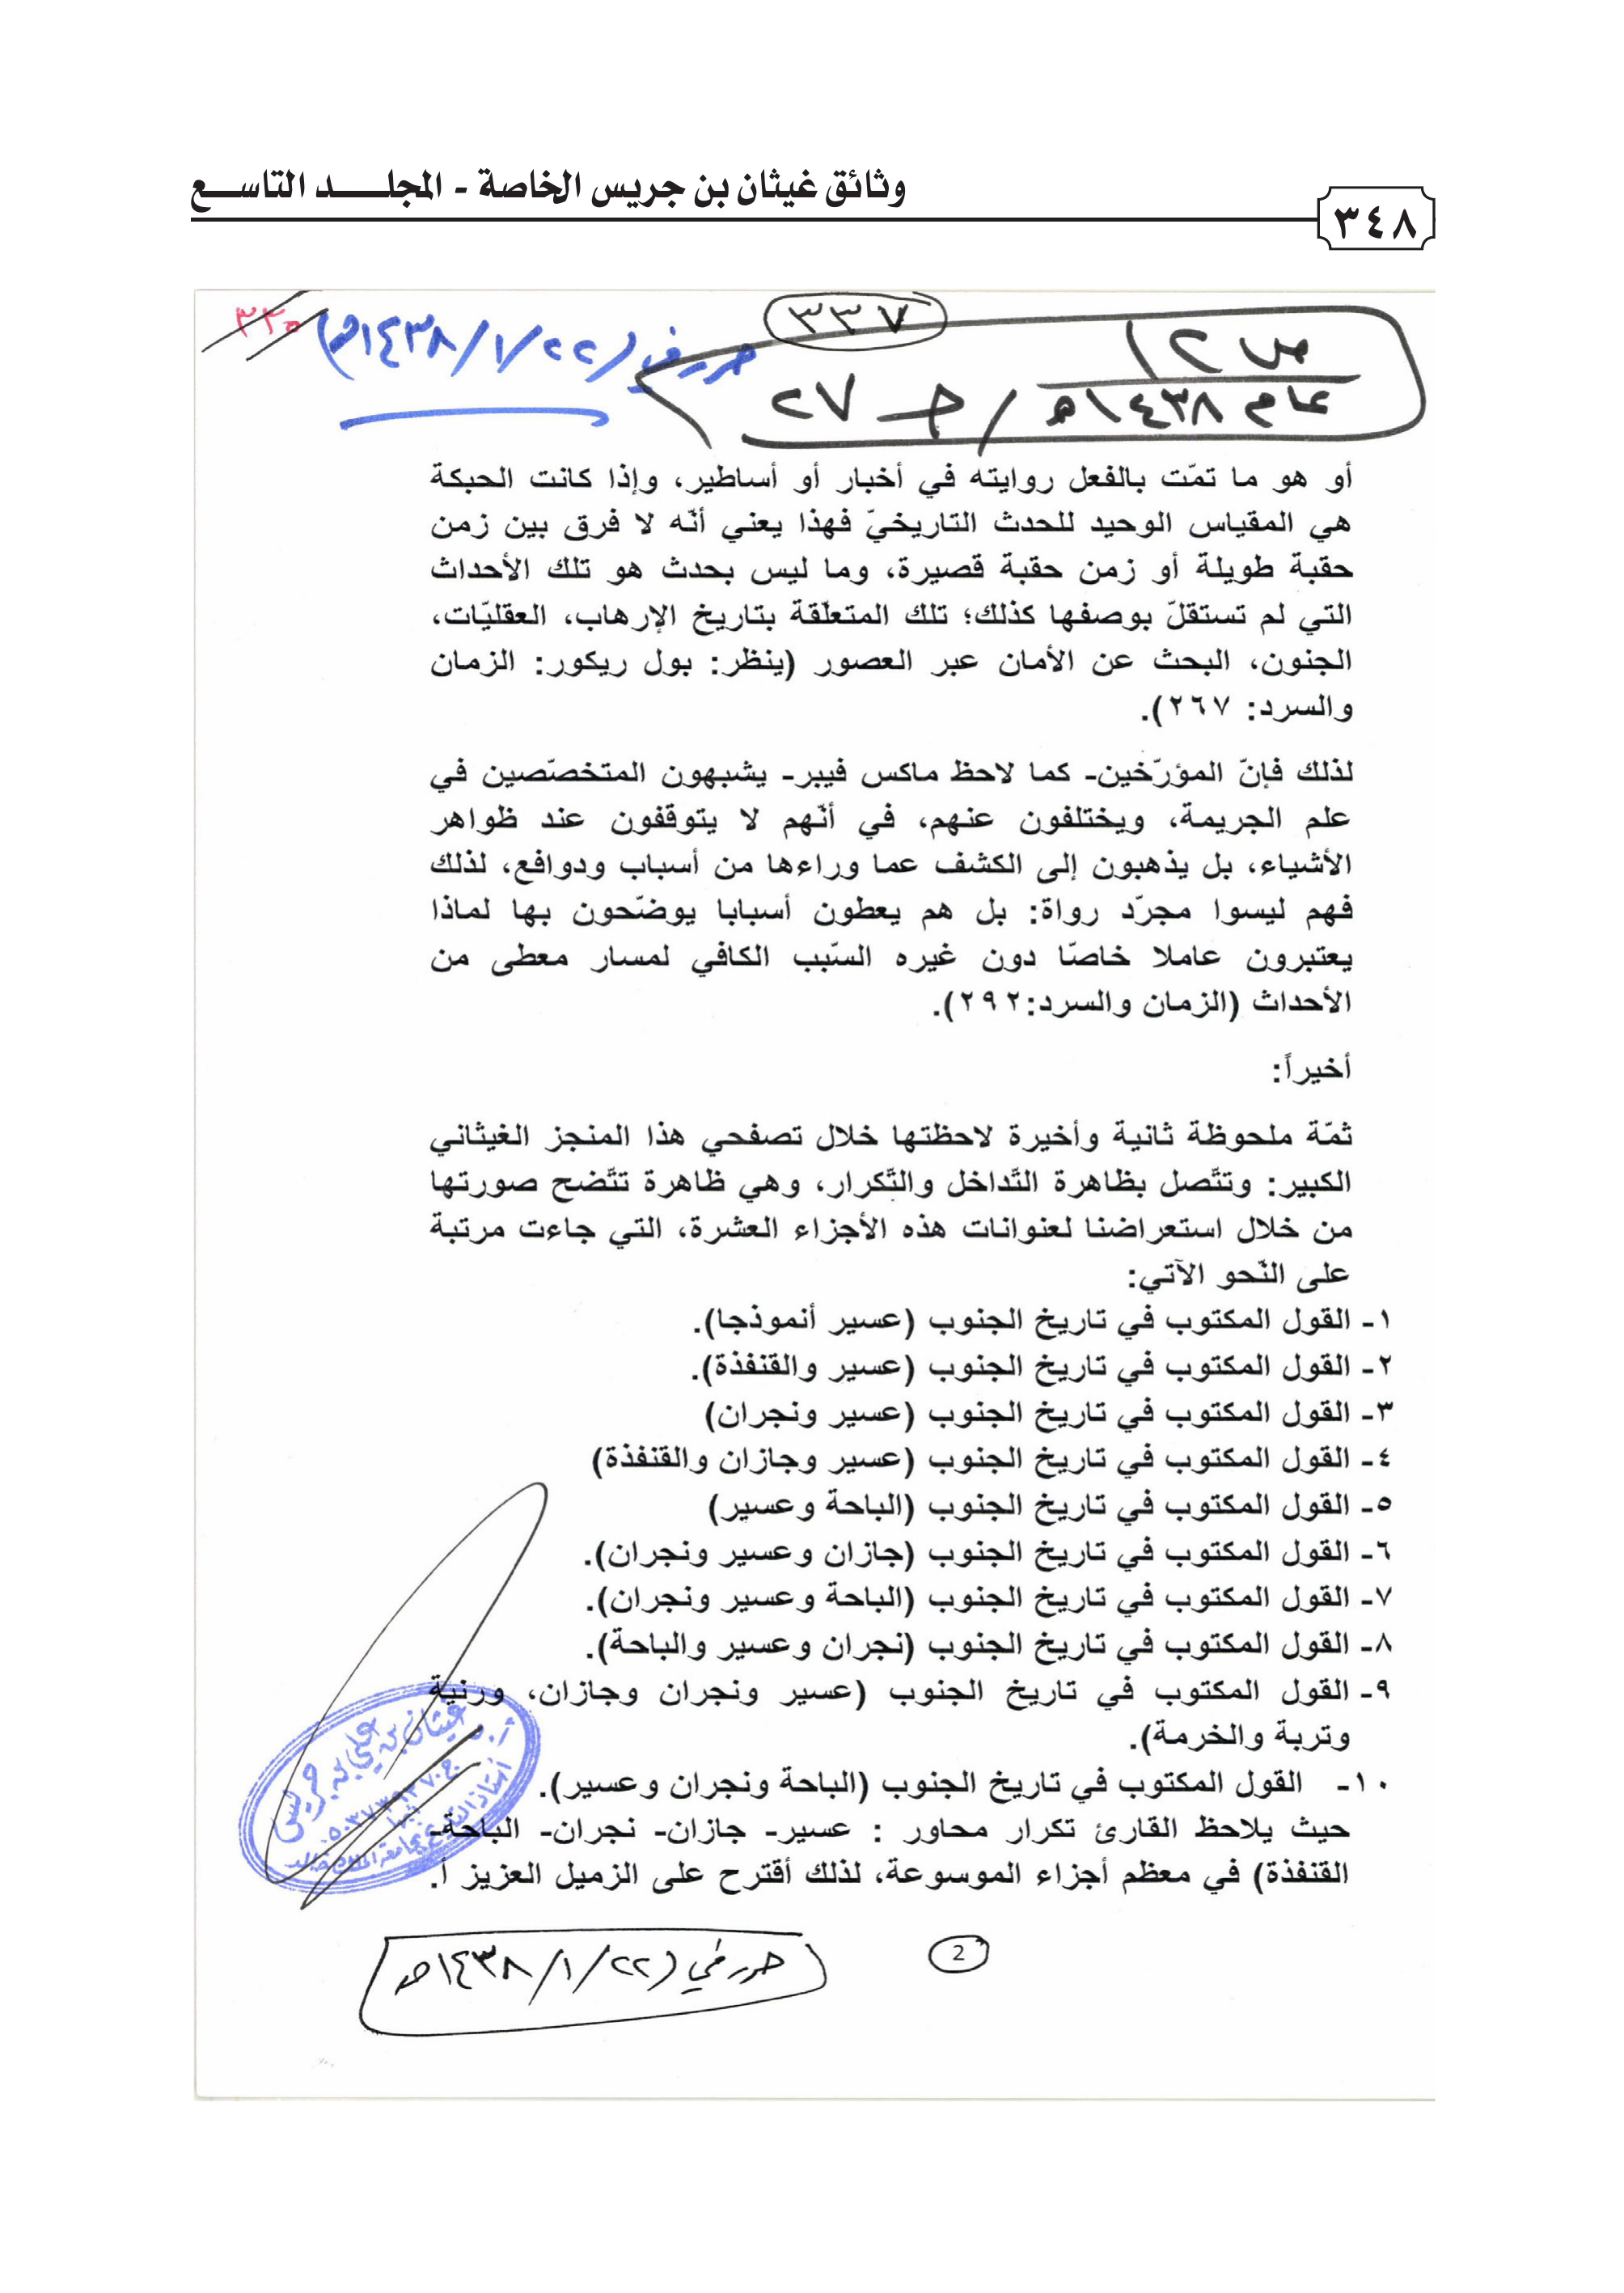 وثائق غيثان بن جريس الخاصة - المجلـــــد التاســـع
٣٤٨
٣٣٧
٣٣٥
حرر في (٢٢/١/١٤٣٨هـ)
ص ١٢
عام ١٤٣٨هـ / جـ ٢٧
أو هو ما تمّت بالفعل روايته في أخبار أو أساطير، وإذا كانت الحبكة
هي المقياس الوحيد للحدث التاريخيّ فهذا يعني أنّه لا فرق بين زمن
حقبة طويلة أو زمن حقبة قصيرة، وما ليس بحدث هو تلك الأحداث
التي لم تستقلّ بوصفها كذلك؛ تلك المتعلّقة بتاريخ الإرهاب، العقليّات،
الجنون، البحث عن الأمان عبر العصور (ينظر: بول ريكور: الزمان
والسرد: ٢٦٧).
لذلك فإنّ المؤرّخين- كما لاحظ ماكس فيبر- يشبهون المتخصّصين في
علم الجريمة، ويختلفون عنهم، في أنّهم لا يتوقفون عند ظواهر
الأشياء، بل يذهبون إلى الكشف عما وراءها من أسباب ودوافع، لذلك
فهم ليسوا مجرّد رواة: بل هم يعطون أسبابا يوضّحون بها لماذا
يعتبرون عاملا خاصّا دون غيره السّبب الكافي لمسار معطى من
الأحداث (الزمان والسرد:٢٩٢).
أخيراً:
ثمّة ملحوظة ثانية وأخيرة لاحظتها خلال تصفحي هذا المنجز الغيثاني
الكبير: وتتّصل بظاهرة التّداخل والتّكرار، وهي ظاهرة تتّضح صورتها
من خلال استعراضنا لعنوانات هذه الأجزاء العشرة، التي جاءت مرتبة
على النّحو الآتي:
١- القول المكتوب في تاريخ الجنوب (عسير أنموذجا).
٢- القول المكتوب في تاريخ الجنوب (عسير والقنفذة).
٣- القول المكتوب في تاريخ الجنوب (عسير ونجران)
٤- القول المكتوب في تاريخ الجنوب (عسير وجازان والقنفذة)
٥- القول المكتوب في تاريخ الجنوب (الباحة وعسير)
٦- القول المكتوب في تاريخ الجنوب (جازان وعسير ونجران).
٧- القول المكتوب في تاريخ الجنوب (الباحة وعسير ونجران).
٨- القول المكتوب في تاريخ الجنوب (نجران وعسير والباحة).
٩- القول المكتوب في تاريخ الجنوب (عسير ونجران وجازان، ورنية
وتربة والخرمة).
١٠- القول المكتوب في تاريخ الجنوب (الباحة ونجران وعسير).
حيث يلاحظ القارئ تكرار محاور : عسير- جازان- نجران- الباحة-
القنفذة) في معظم أجزاء الموسوعة، لذلك أقترح على الزميل العزيز أ.
أ.د. غيثان بن علي بن جريس
أستاذ التاريخ بجامعة الملك خالد
2
حرر في (٢٢/١/١٤٣٨هـ